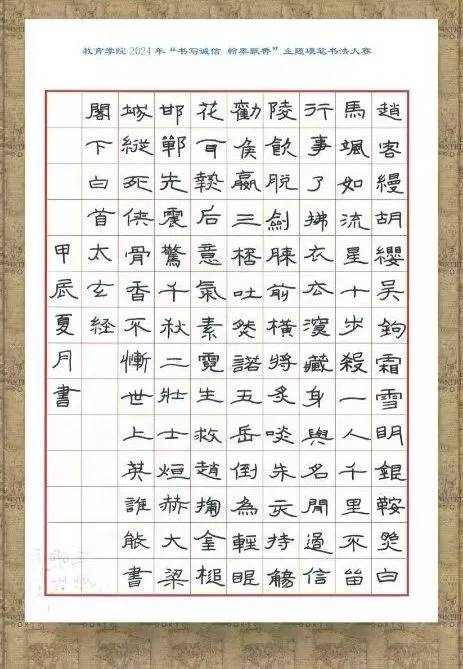 教育学院 2024 年“书写诚信 翰墨飘香”主题硬笔书法大赛
趙客縵胡纓吳鉤霜雪明銀鞍照白
馬颯如流星十步殺一人千里不留
行事了拂衣去深藏身與名閒過信
陵飲脫劍膝前橫將炙啖朱亥持觴
勸侯嬴三桮吐然諾五岳倒為輕眼
花耳熱后意氣素霓生救趙揮金槌
邯鄲先震驚千秋二壯士烜赫大梁
城縱死俠骨香不慚世上英誰能書
閣下白首太玄経
甲辰夏月書